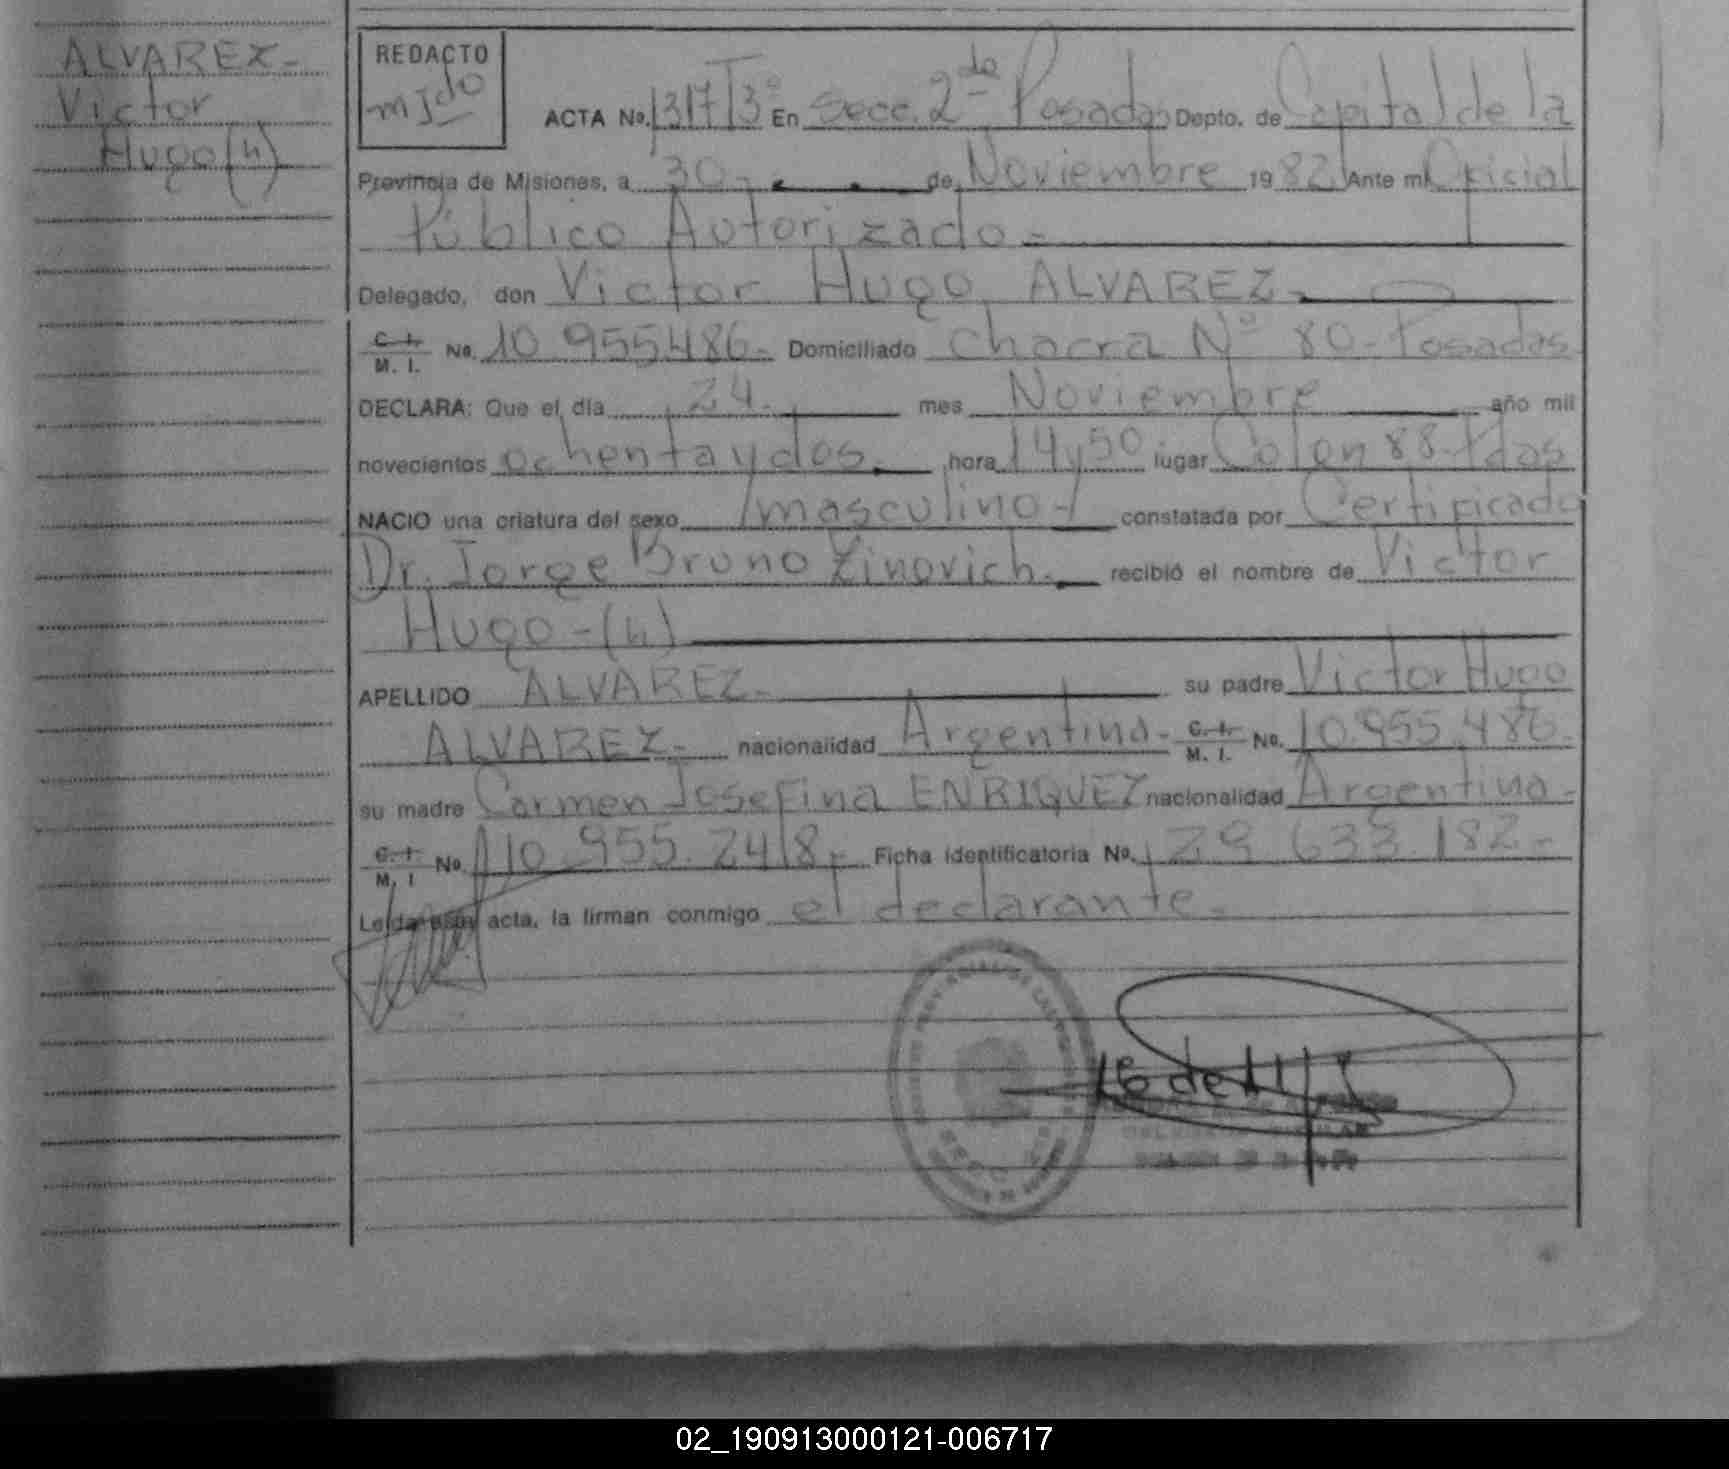 ALVAREZ-
Victor
Hugo (h)
REDACTO
ACTA No. 1317 Tº 3º En Secc. 2da Posadas Depto. de Capital de la
Provincia de Misiones, a 30 - de Noviembre 1982 Ante mí Oficial
Público Autorizado.-
Delegado, don Victor Hugo ALVAREZ.-
C. I. M. I. No. 10.955.486.- Domiciliado Chacra Nº 80-Posadas
DECLARA: Que el día 24.- mes Noviembre año mil
novecientos ochentaydos.- hora 14y50 lugar Colon 88-Pdas
NACIO una criatura del sexo /masculino-/ constatada por Certificado
Dr. Jorge Bruno Zinovich.- recibió el nombre de Victor
Hugo-(h)
APELLIDO ALVAREZ.- su padre Victor Hugo
ALVAREZ.- nacionalidad Argentina.- C. I. M. I. No. 10.955.486.-
su madre Carmen Josefina ENRIQUEZ nacionalidad Argentina.-
C. I. M. I No. 10.955.248.- Ficha identificatoria No. 29.633.182.-
Leída esta acta, la firman conmigo el declarante.-
02_190913000121-006717